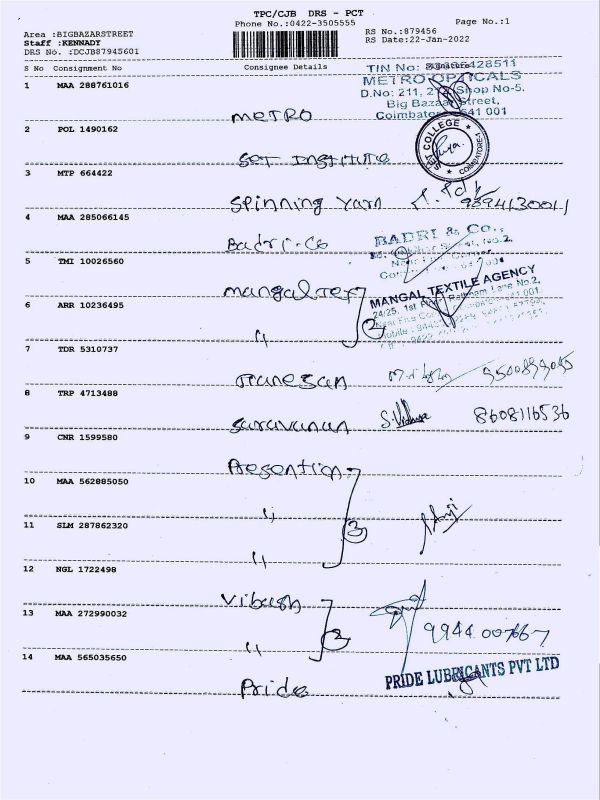 TPC/CJB DRS - PCT
Phone No.:0422-3505555
Page No.:1
Area :BIGBAZARSTREET
Staff :KENNADY
DRS No. :DCJB87945601
RS No.:879456
RS Date:22-Jan-2022
S No Consignment No Consignee Details
TIN No:
METRO OPTICALS
D.No: 211, Shop No-5.
Big Bazaar Street,
Coimbatore 641 001
1 MAA 288761016
METRO
SET COLLEGE
COIMBATORE-1
2 POL 1490162
SET INSTITUTE
3 MTP 664422
Spinning Yarn 9894130011
4 MAA 285066145
Badri.Co
BADRI & Co.,
5 TMI 10026560
mangal Tex
MANGAL TEXTILE AGENCY
24/25, 1st Lane No.2,
6 ARR 10236495
" 2
7 TDR 5310737
8 TRP 4713488
Saravanan 8608116536
9 CNR 1599580
10 MAA 562885050
"
11 SLM 287862320
" 3
12 NGL 1722498
13 MAA 272990032
" 2
14 MAA 565035650
Pride
PRIDE LUBRICANTS PVT LTD